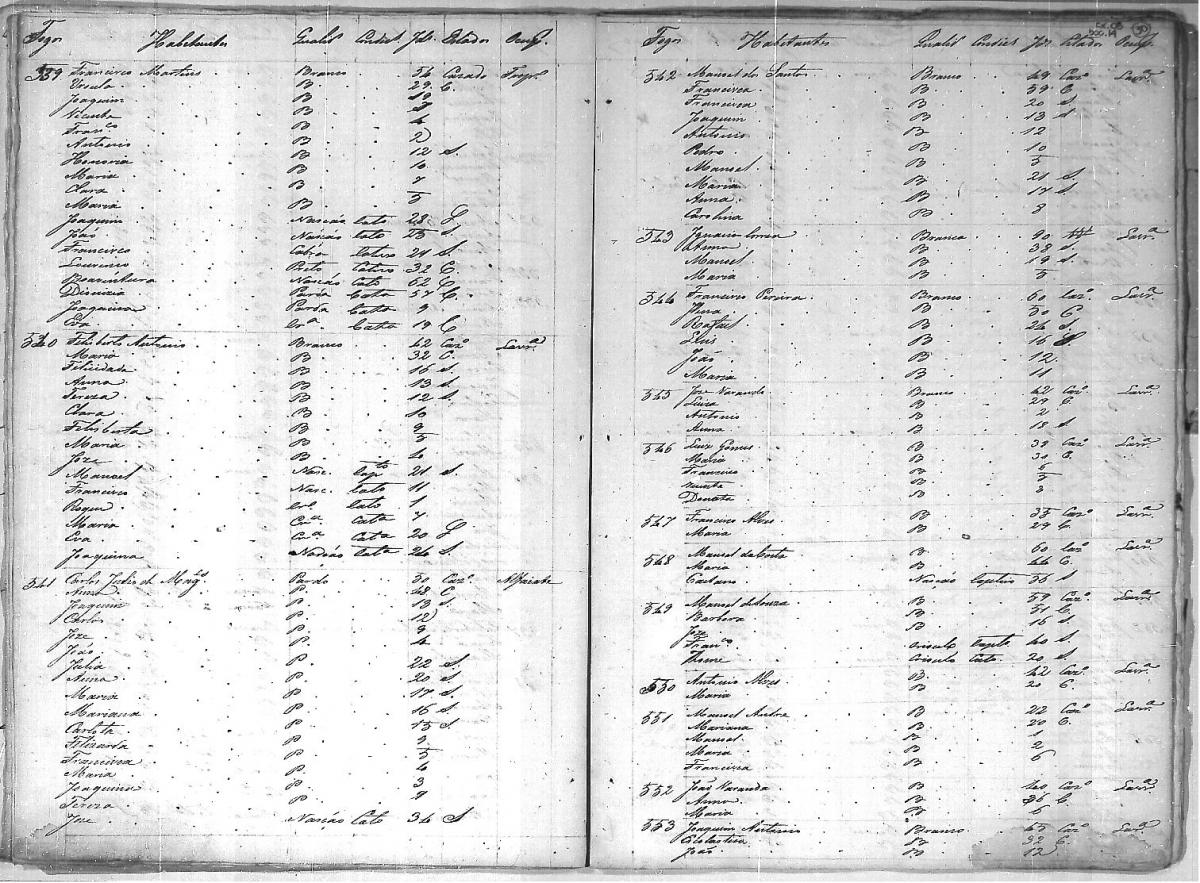 Fogos Habitantes Qualid Condict Id. Estados Ocup.
539 Francisco Martins Branco 54 Cazado
Ursula B 29 C
Joaquim B 19
Vicente B
Franco B 4
Antonio B 2
Honoria B 12 S
Maria B 10
Clara B 7
Maria B 5
Joaquim Nascão Cato 28 S
João Nascão Cato 25 S
Francisco Cabra Cativo 21 S
Lourenço Preto Cativo 32 C
Boaventura Nascão Cato 62 C
Dionizia Parda Cata 57 C
Joaquina Parda Cata 9
Eva Cra Cata 19 C
540 Felisberto Antonio Branco 42 Cazo Lavra
Maria B 32 C
Felicidade B 16 S
Anna B 13 S
Tereza B 12 S
Clara B 10
Felisberta B 9
Maria B 5
Joze B 4
Manoel Nasc. Capto 21 S
Francisco Nasc. Cato 11
Roque Crl Cato 1
Maria Cra Cata 7
Eva Cra Cata 20 S
Joaquina Nascão Cata 26 S
541 Carlos Julio de Mago Pardo 50 Cazo Alfaiate
Anna P. 48 C
Joaquim P. 13 S
Carlos P. 12
Joze P. 9
João P. 4
Julia P. 22 S
Anna P. 20 S
Maria P. 17 S
Mariana P. 16 S
Carlota P. 15 S
Felizarda P. 9
Francisca P. 5
Maria P. 4
Joaquina P. 3
Tereza P. 9
Joze Nascão Cato 34 S
Fogos Habitantes Qualid Condict Id. Estados Ocup.
542 Manoel dos Santos Branco 49 Cazo Lavra
Francisca B 39 C
Francisca B 20 S
Joaquim B 13 S
Antonio B 12
Pedro B 10
Manoel B 5
Maria B 21 S
Anna B 17 S
Carolina B 8
543 Ignacia Correa Branca 90 Lavra
Anna B 38 S
Manoel B 19 S
Maria B 5
544 Francisco Pereira Branco 60 Cazo Lavra
Anna B 50 C
Rafael B 26 S
Luis B 16 S
João B 12
Maria B 11
545 Joze Naranda Branco 42 Cazo Lavra
Luiza B 29 C
Antonio B 2
Anna B 18 S
546 Luiz Gomes B 39 Cazo Lavra
Maria B 30 C
Francisco B 6
B 5
Donata B 3
547 Francisco Alves B 35 Cazo Lavra
Maria B 29 C
548 Manoel da Costa B 60 Cazo Lavra
Maria B 44 C
Caetano Nascão Captivo 36 S
549 Manoel de Souza B 59 Cazo Lavra
Barbora B 51 C
Joze B 16 S
Franco Crioulo Capto 40 S
Thome Crioulo Cato 20 S
550 Antonio Alves B 42 Cazo Lavra
Maria B 20 C
551 Manoel Andre B 22 Cazo Lavra
Mariana B 20 C
Manoel B 1
Maria B 2
Francisca B 6
552 João Naranda B 40 Cazo Lavra
Anna B 36 C
Maria B 6
553 Joaquim Antonio Branco 45 Cazo Lavra
Escolastica B 32 C
João B 12